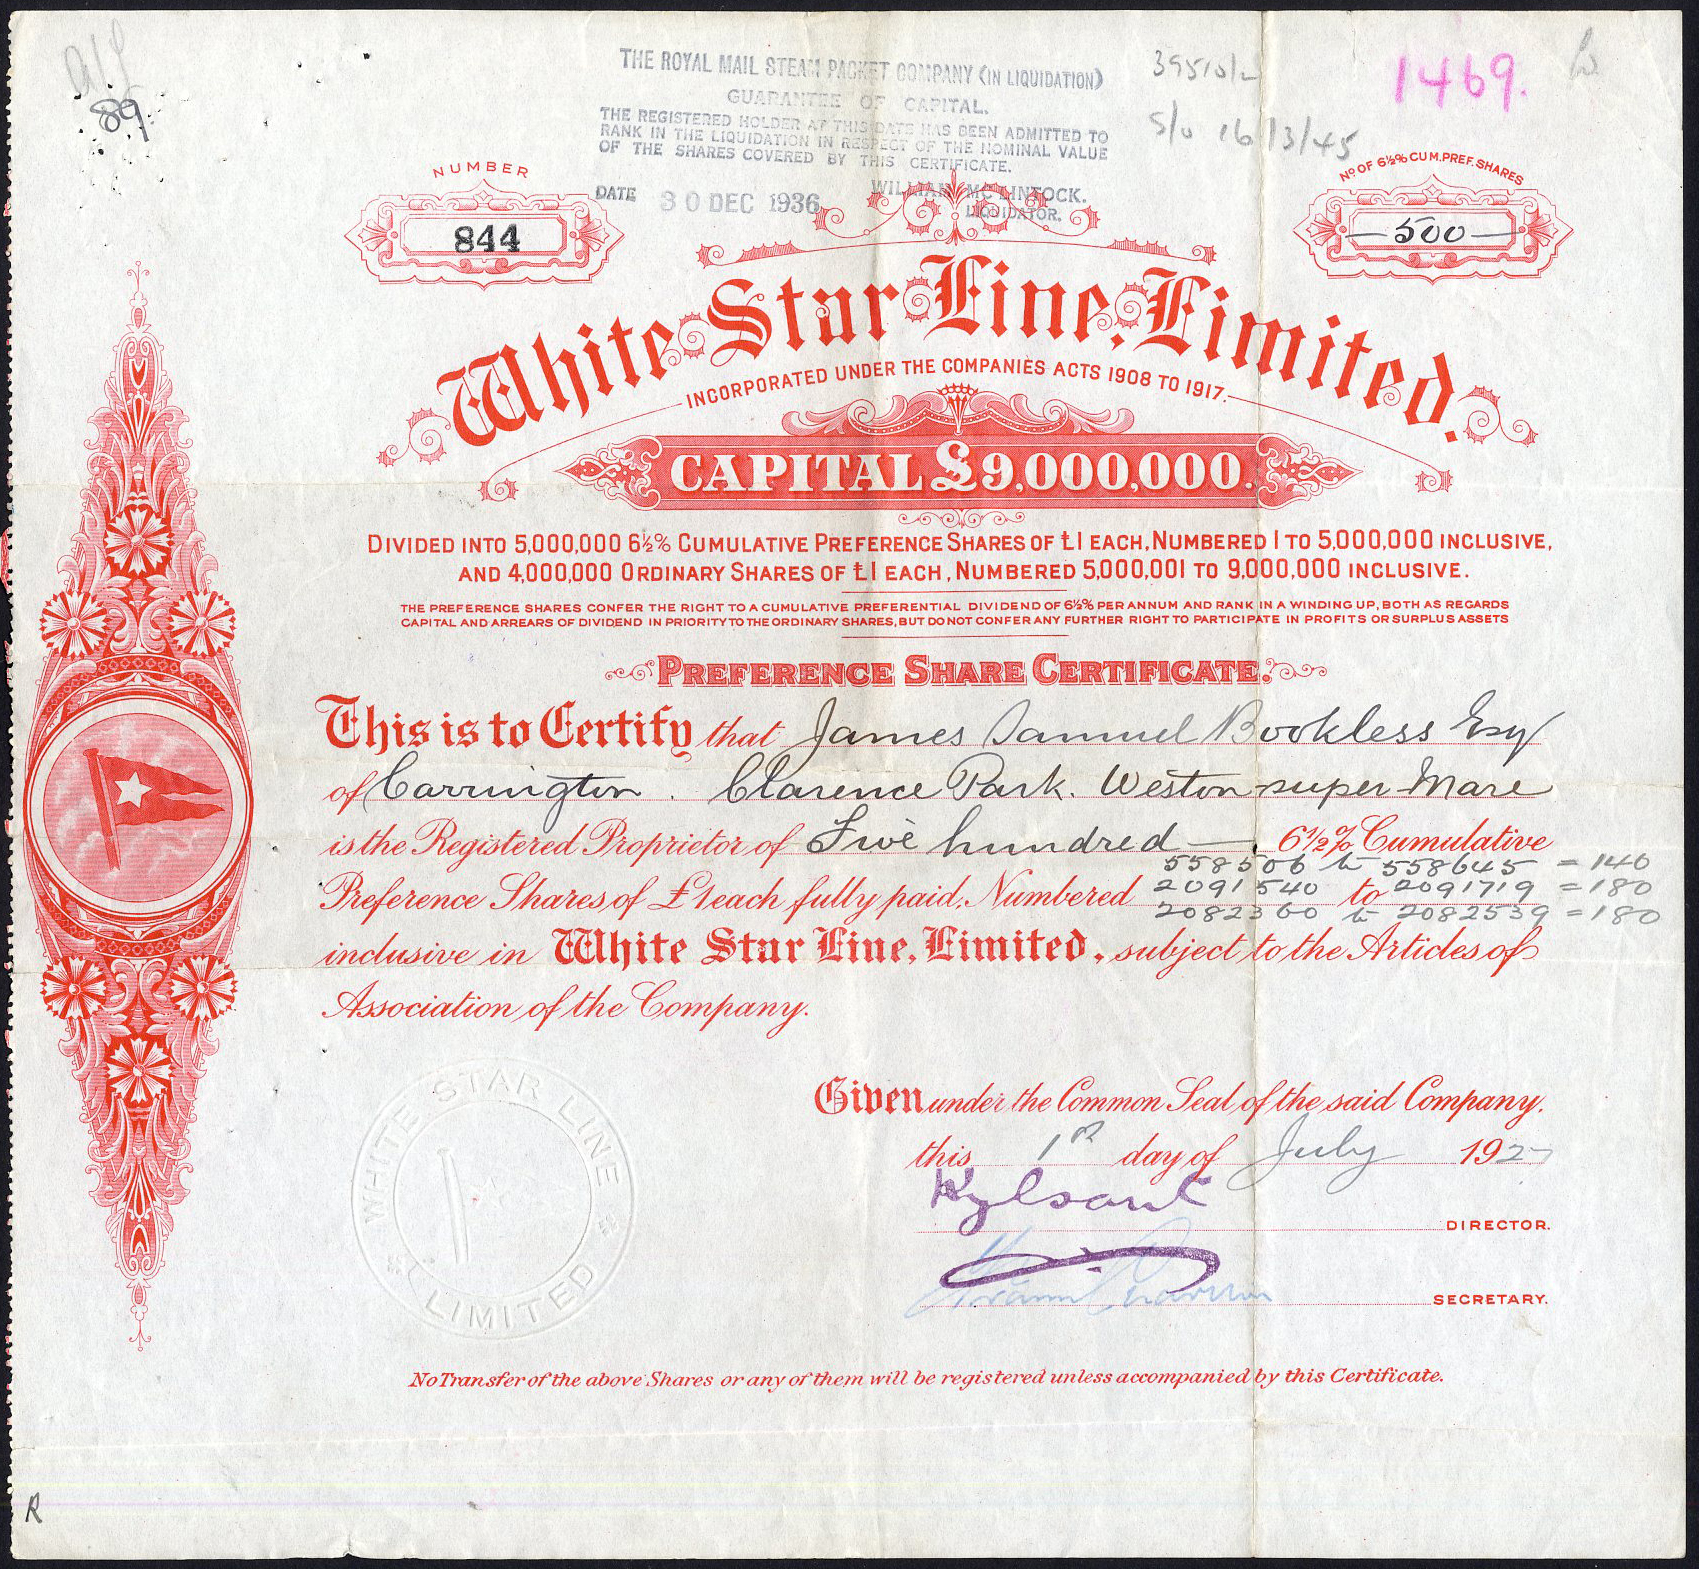 89
THE ROYAL MAIL STEAM PACKET COMPANY (IN LIQUIDATION)
GUARANTEE OF CAPITAL.
THE REGISTERED HOLDER AT THIS DATE HAS BEEN ADMITTED TO
RANK IN THE LIQUIDATION IN RESPECT OF THE NOMINAL VALUE
OF THE SHARES COVERED BY THIS CERTIFICATE.
DATE 30 DEC 1936
WILLIAM MCLINTOCK.
LIQUIDATOR.
1469.
16/3/45
NUMBER
844
No OF 6½% CUM. PREF. SHARES
500
White Star Line, Limited.
INCORPORATED UNDER THE COMPANIES ACTS 1908 TO 1917.
CAPITAL £9,000,000.
DIVIDED INTO 5,000,000 6½% CUMULATIVE PREFERENCE SHARES OF £1 EACH, NUMBERED 1 TO 5,000,000 INCLUSIVE,
AND 4,000,000 ORDINARY SHARES OF £1 EACH, NUMBERED 5,000,001 TO 9,000,000 INCLUSIVE.
THE PREFERENCE SHARES CONFER THE RIGHT TO A CUMULATIVE PREFERENTIAL DIVIDEND OF 6½% PER ANNUM AND RANK IN A WINDING UP, BOTH AS REGARDS
CAPITAL AND ARREARS OF DIVIDEND IN PRIORITY TO THE ORDINARY SHARES, BUT DO NOT CONFER ANY FURTHER RIGHT TO PARTICIPATE IN PROFITS OR SURPLUS ASSETS
PREFERENCE SHARE CERTIFICATE.
This is to Certify that James Samuel Bookless Esq
of Carrington. Clarence Park. Weston-super-Mare
is the Registered Proprietor of Five hundred — 6½% Cumulative
558506 to 558645 = 140
Preference Shares of £1 each fully paid, Numbered 2091540 to 2091719 = 180
2082360 to 2082539 = 180
inclusive in White Star Line, Limited, subject to the Articles of
Association of the Company.
Given under the Common Seal of the said Company.
this 1st day of July 1927
Kylsant
DIRECTOR.
SECRETARY.
WHITE STAR LINE
LIMITED
No Transfer of the above Shares or any of them will be registered unless accompanied by this Certificate.
R